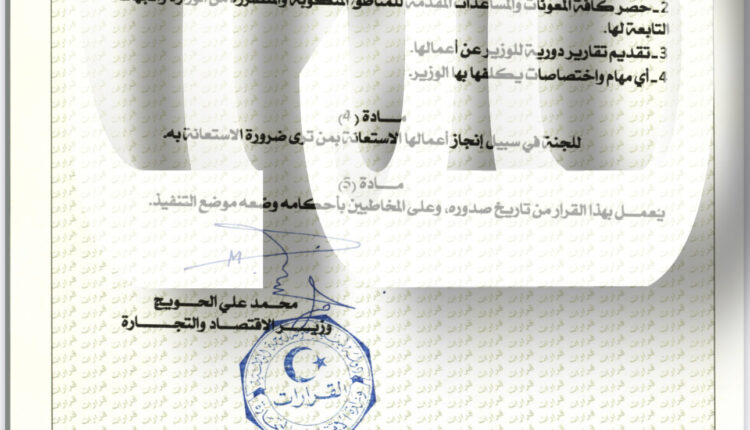 2ـ حصر كافة المعونات والمساعدات المقدمة للمناطق المنكوبة والمتضررة من الوزارة والجهات
التابعة لها.
3ـ تقديم تقارير دورية للوزير عن أعمالها.
4ـ أي مهام واختصاصات يكلفها بها الوزير.
مــادة (4)
للجنة في سبيل إنجاز أعمالها الاستعانة بمن ترى ضرورة الاستعانة به.
مــادة (5)
يعمل بهذا القرار من تاريخ صدوره، وعلى المخاطبين بأحكامه وضعه موضع التنفيذ.
محمد علي الحويج
وزير الاقتصاد والتجارة
القرارات